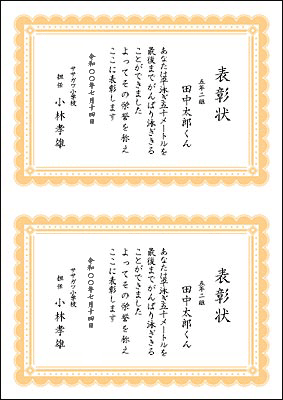 表彰状
五年二組
田中太郎くん
あなたは平泳ぎ五十メートルを
最後までがんばり泳ぎきる
ことができました
よってその栄誉を称え
ここに表彰します
令和〇〇年七月十四日
ササガワ小学校
担任 小林孝雄
表彰状
五年二組
田中太郎くん
あなたは平泳ぎ五十メートルを
最後までがんばり泳ぎきる
ことができました
よってその栄誉を称え
ここに表彰します
令和〇〇年七月十四日
ササガワ小学校
担任 小林孝雄